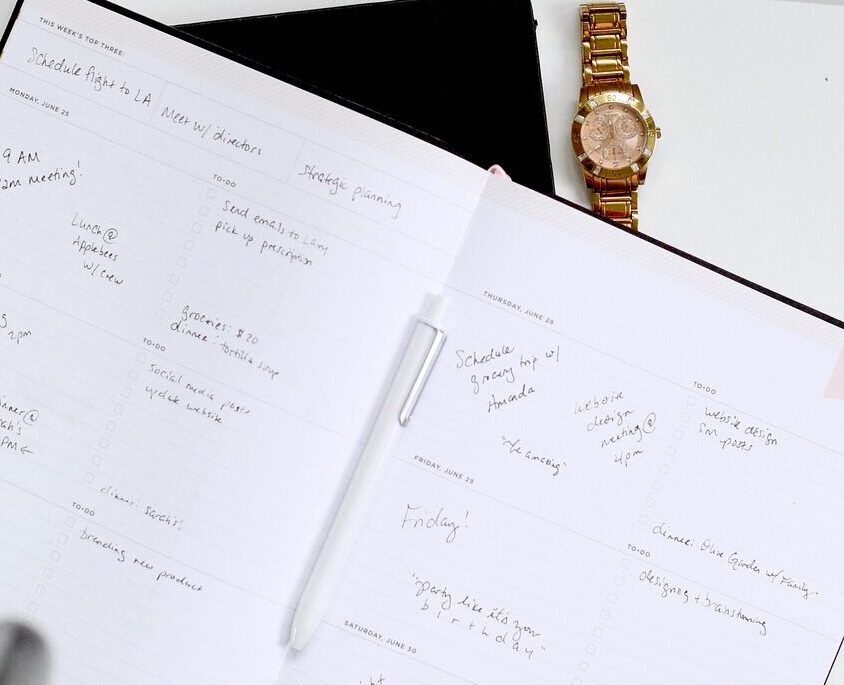 THIS WEEK'S TOP THREE:
Schedule flight to LA
Meet w/ directors
Strategic planning
MONDAY, JUNE 25
9 AM
meeting!
Lunch @
Applebees
w/ crew
TO-DO
Send emails to Larry
pick up prescription
groceries: $20
dinner: tortilla soup
2pm
TO-DO
social media posts
update website
dinner: Sarah's!
TO-DO
branding new product
THURSDAY, JUNE 28
Schedule
grocery trip w/
Amanda
website
design
meeting @
4pm
"be amazing"
TO-DO
website design
sm posts
dinner: Olive Garden w/ Family
FRIDAY, JUNE 29
Friday!
"party like it's your
birthday"
TO-DO
designing + brainstorming
SATURDAY, JUNE 30